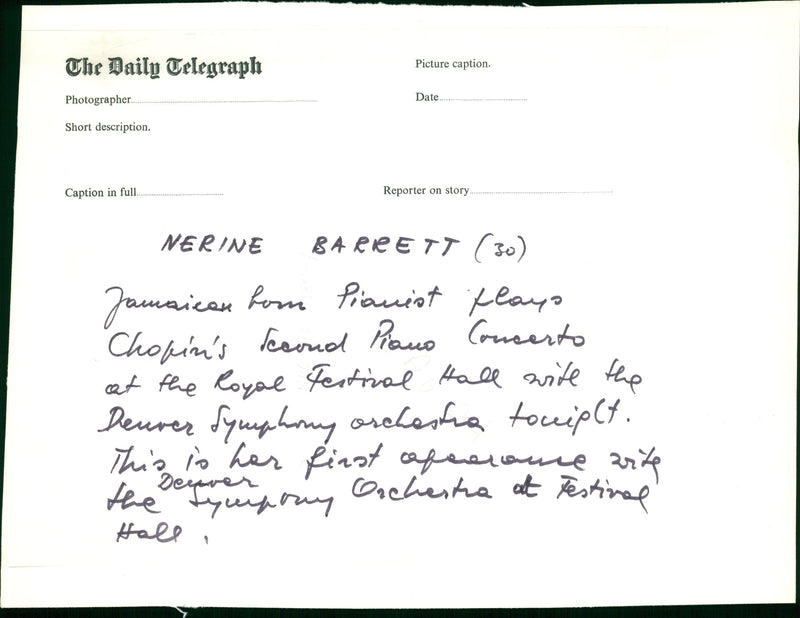 The Daily Telegraph
Picture caption.
Photographer
Date
Short description.
Caption in full
Reporter on story
NERINE BARRETT (30)
Jamaican born Pianist plays
Chopin's Second Piano Concerto
at the Royal Festival Hall with the
Denver Symphony orchestra tonight.
This is her first apearance with
the Denver Sympony Orchestra at Festival
Hall.